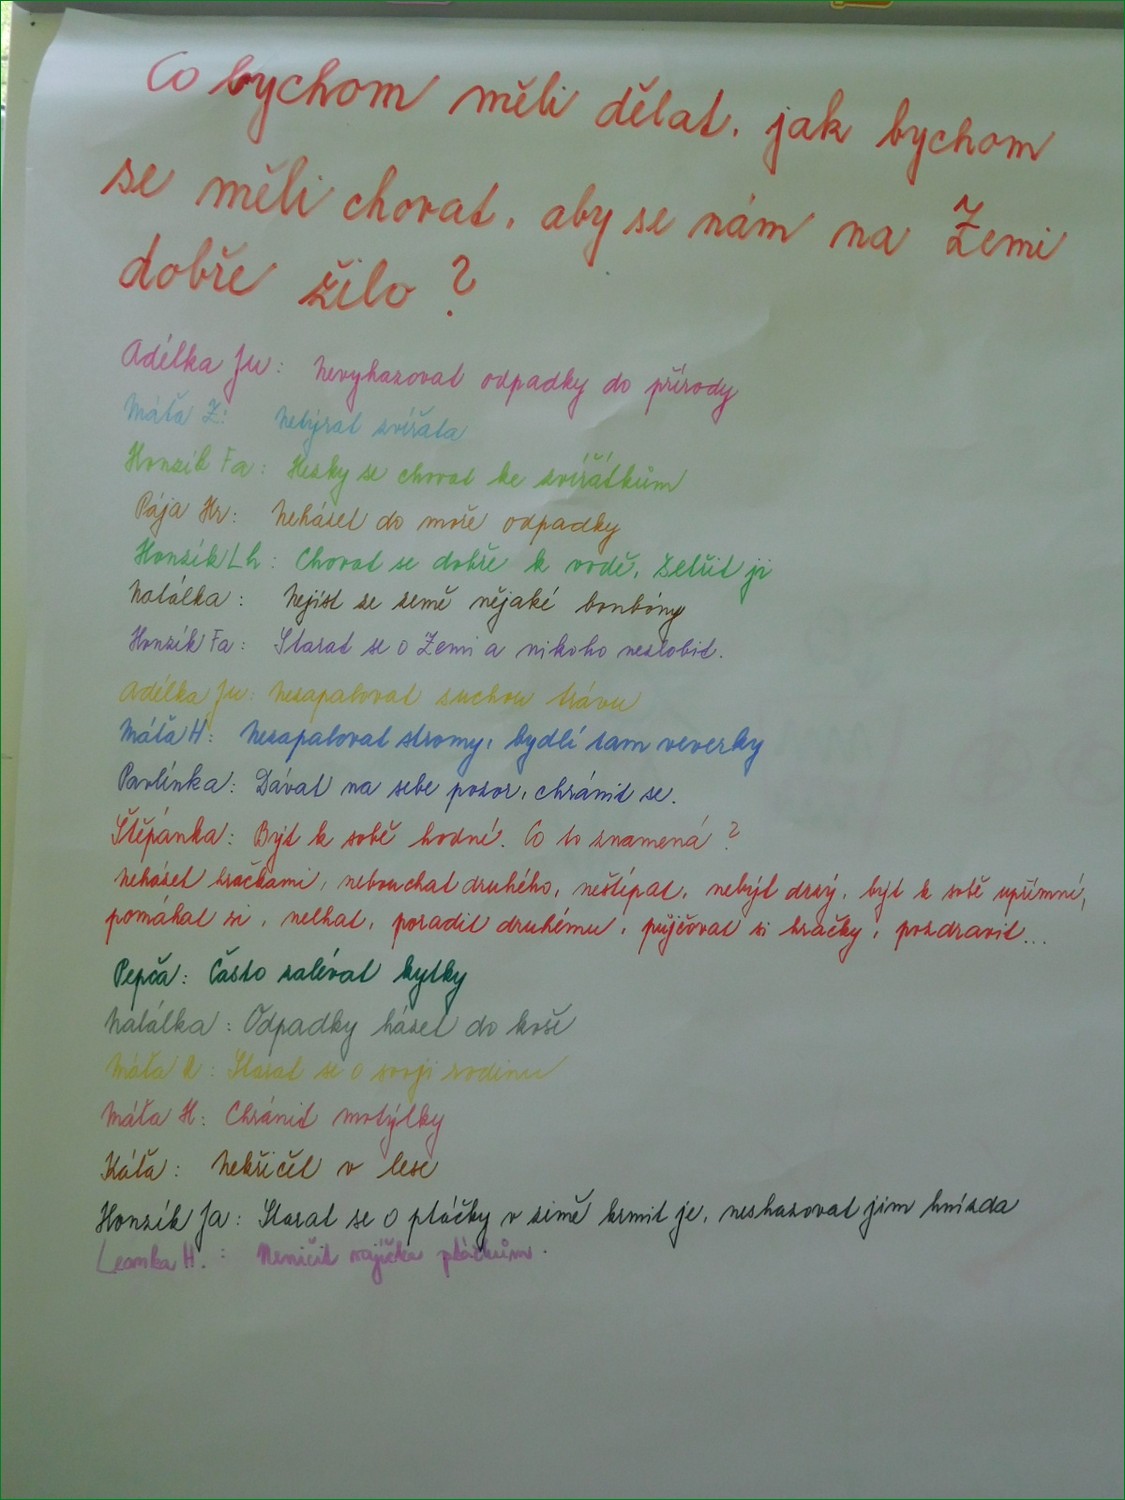 Co bychom měli dělat, jak bychom
se měli chovat, aby se nám na Zemi
dobře žilo?
Adélka Ju: Nevyhazovat odpadky do přírody
Máťa Z: Netýrat zvířata
Honzík Fa: Hezky se chovat ke zvířátkům
Pája Hr: Neházet do moře odpadky
Honzík Lh: Chovat se dobře k vodě, šetřit ji
Natálka: Nejíst ze země nějaké bonbóny
Honzík Fa: Starat se o Zemi a nikoho nezlobit.
Adélka Ju: Nezapalovat suchou trávu
Máťa H: Nezapalovat stromy, bydlí tam veverky
Pavlínka: Dávat na sebe pozor, chránit se.
Štěpánka: Být k sobě hodné. Co to znamená?
neházet hračkami, nebouchat druhého, neštípat, nebýt drzý, být k sobě upřímní,
pomáhat si, nelhat, poradit druhému, půjčovat si hračky, pozdravit...
Pepča: Často zalévat kytky
Natálka: Odpadky házet do koše
Máťa R: Starat se o svoji rodinu
Máťa H: Chránit motýlky
Káťa: Nekřičet v lese
Honzík Ja: Starat se o ptáčky v zimě krmit je, neshazovat jim hnízda
H.: Neničit vajíčka ptáčkům.